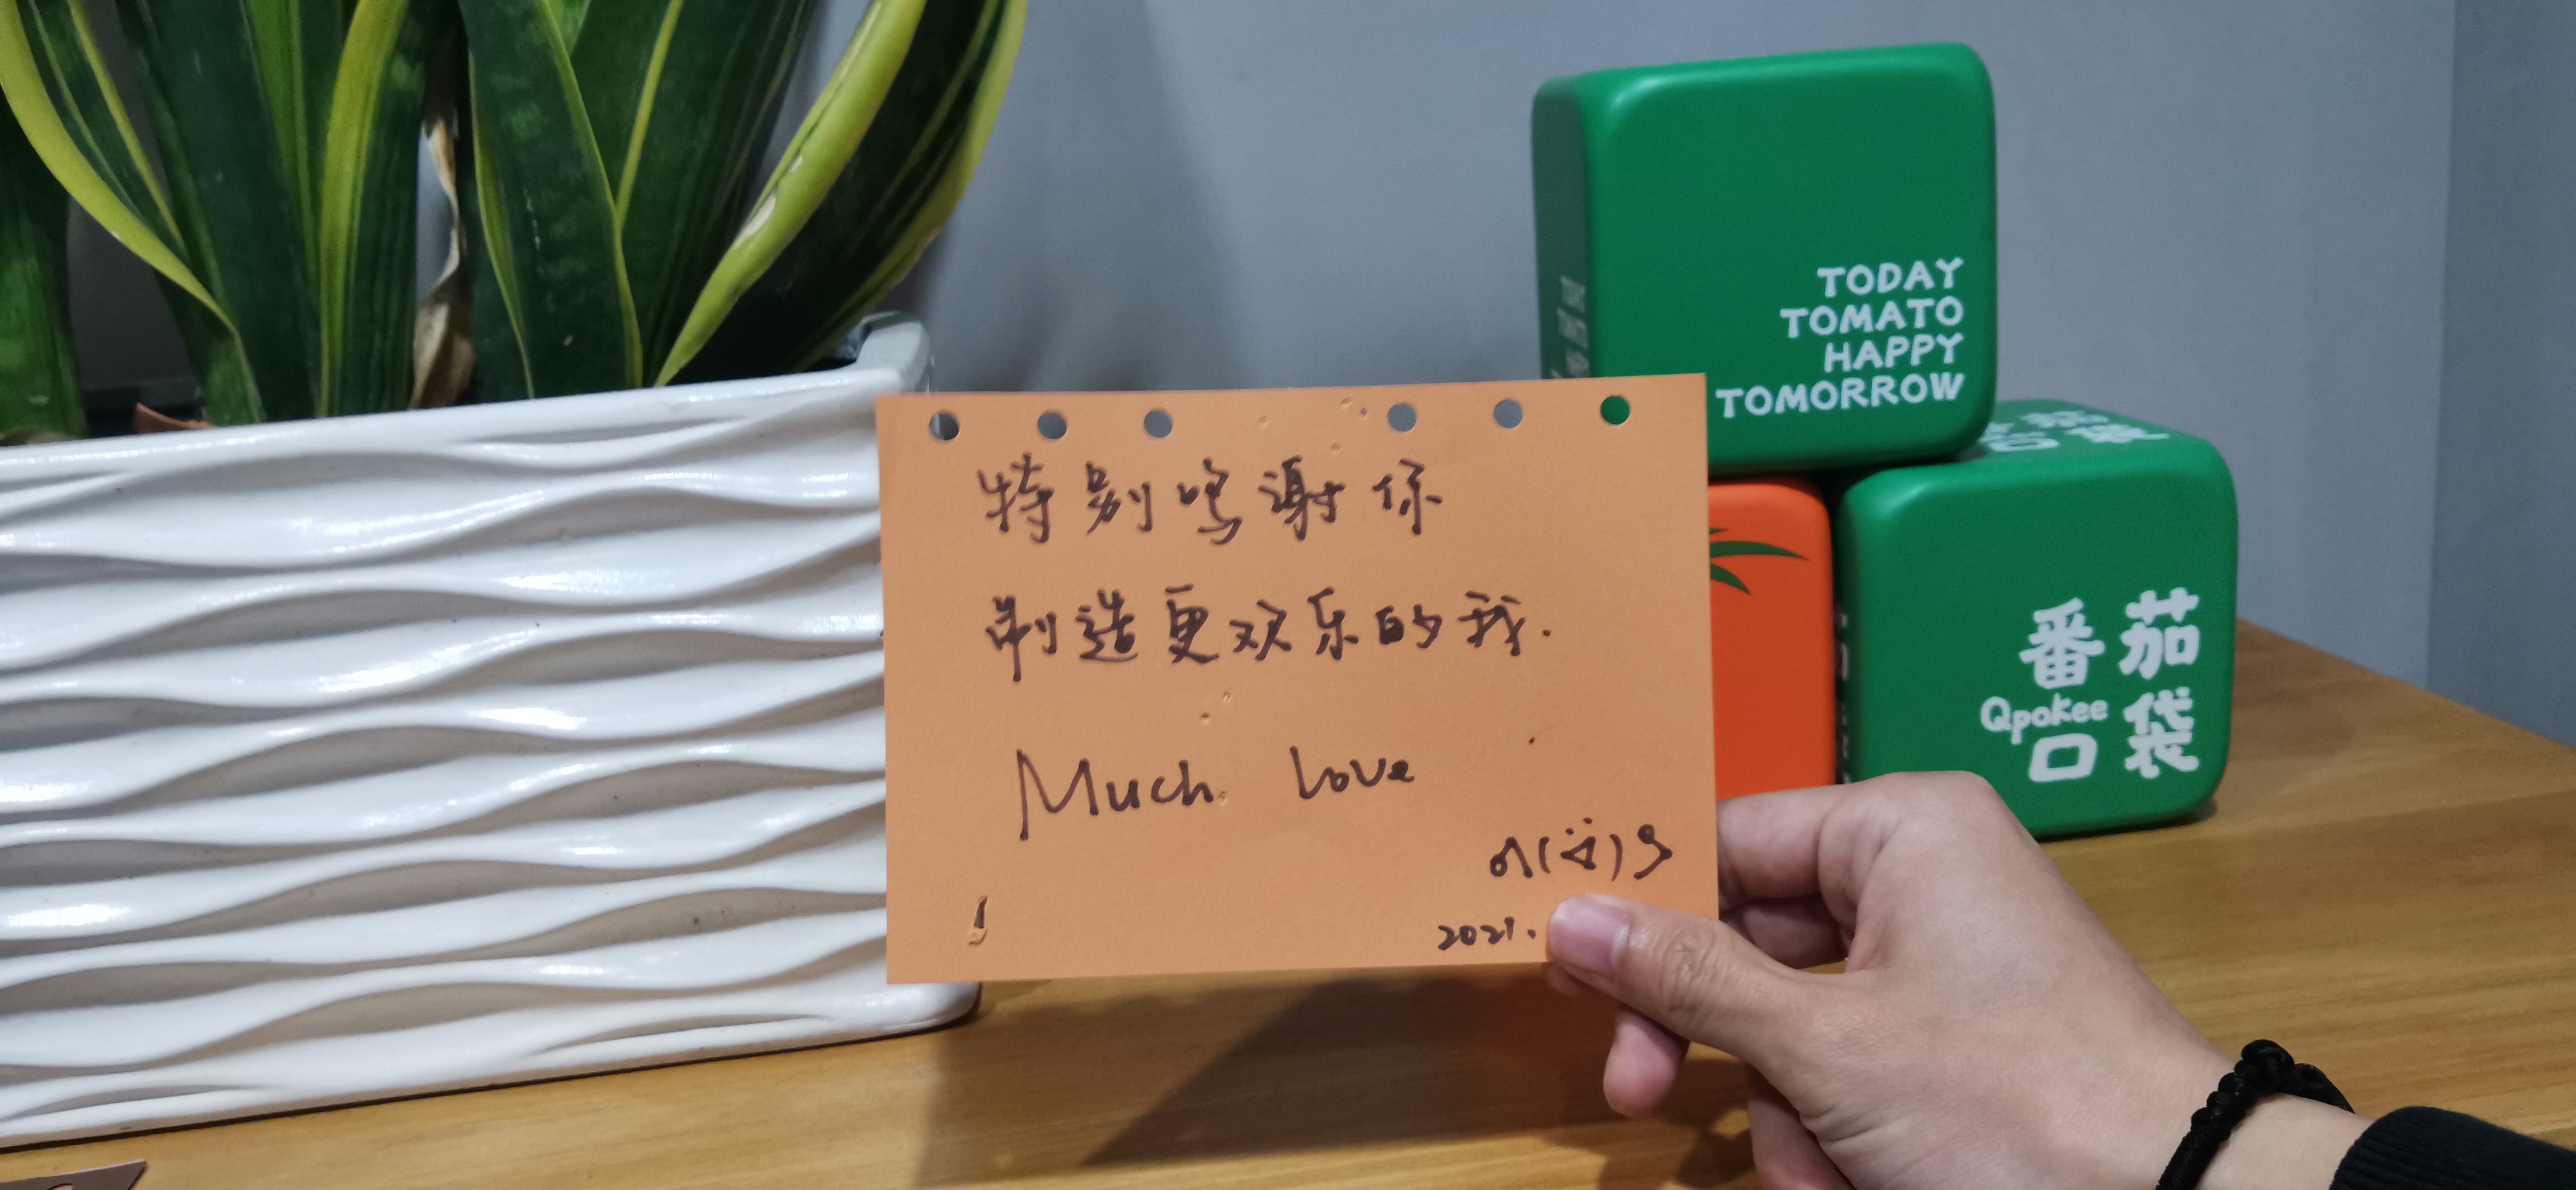 特别鸣谢你
制造更欢乐的我.
Much love
2021.
TODAY
TOMATO
HAPPY
TOMORROW
番茄
Qpokee
口袋